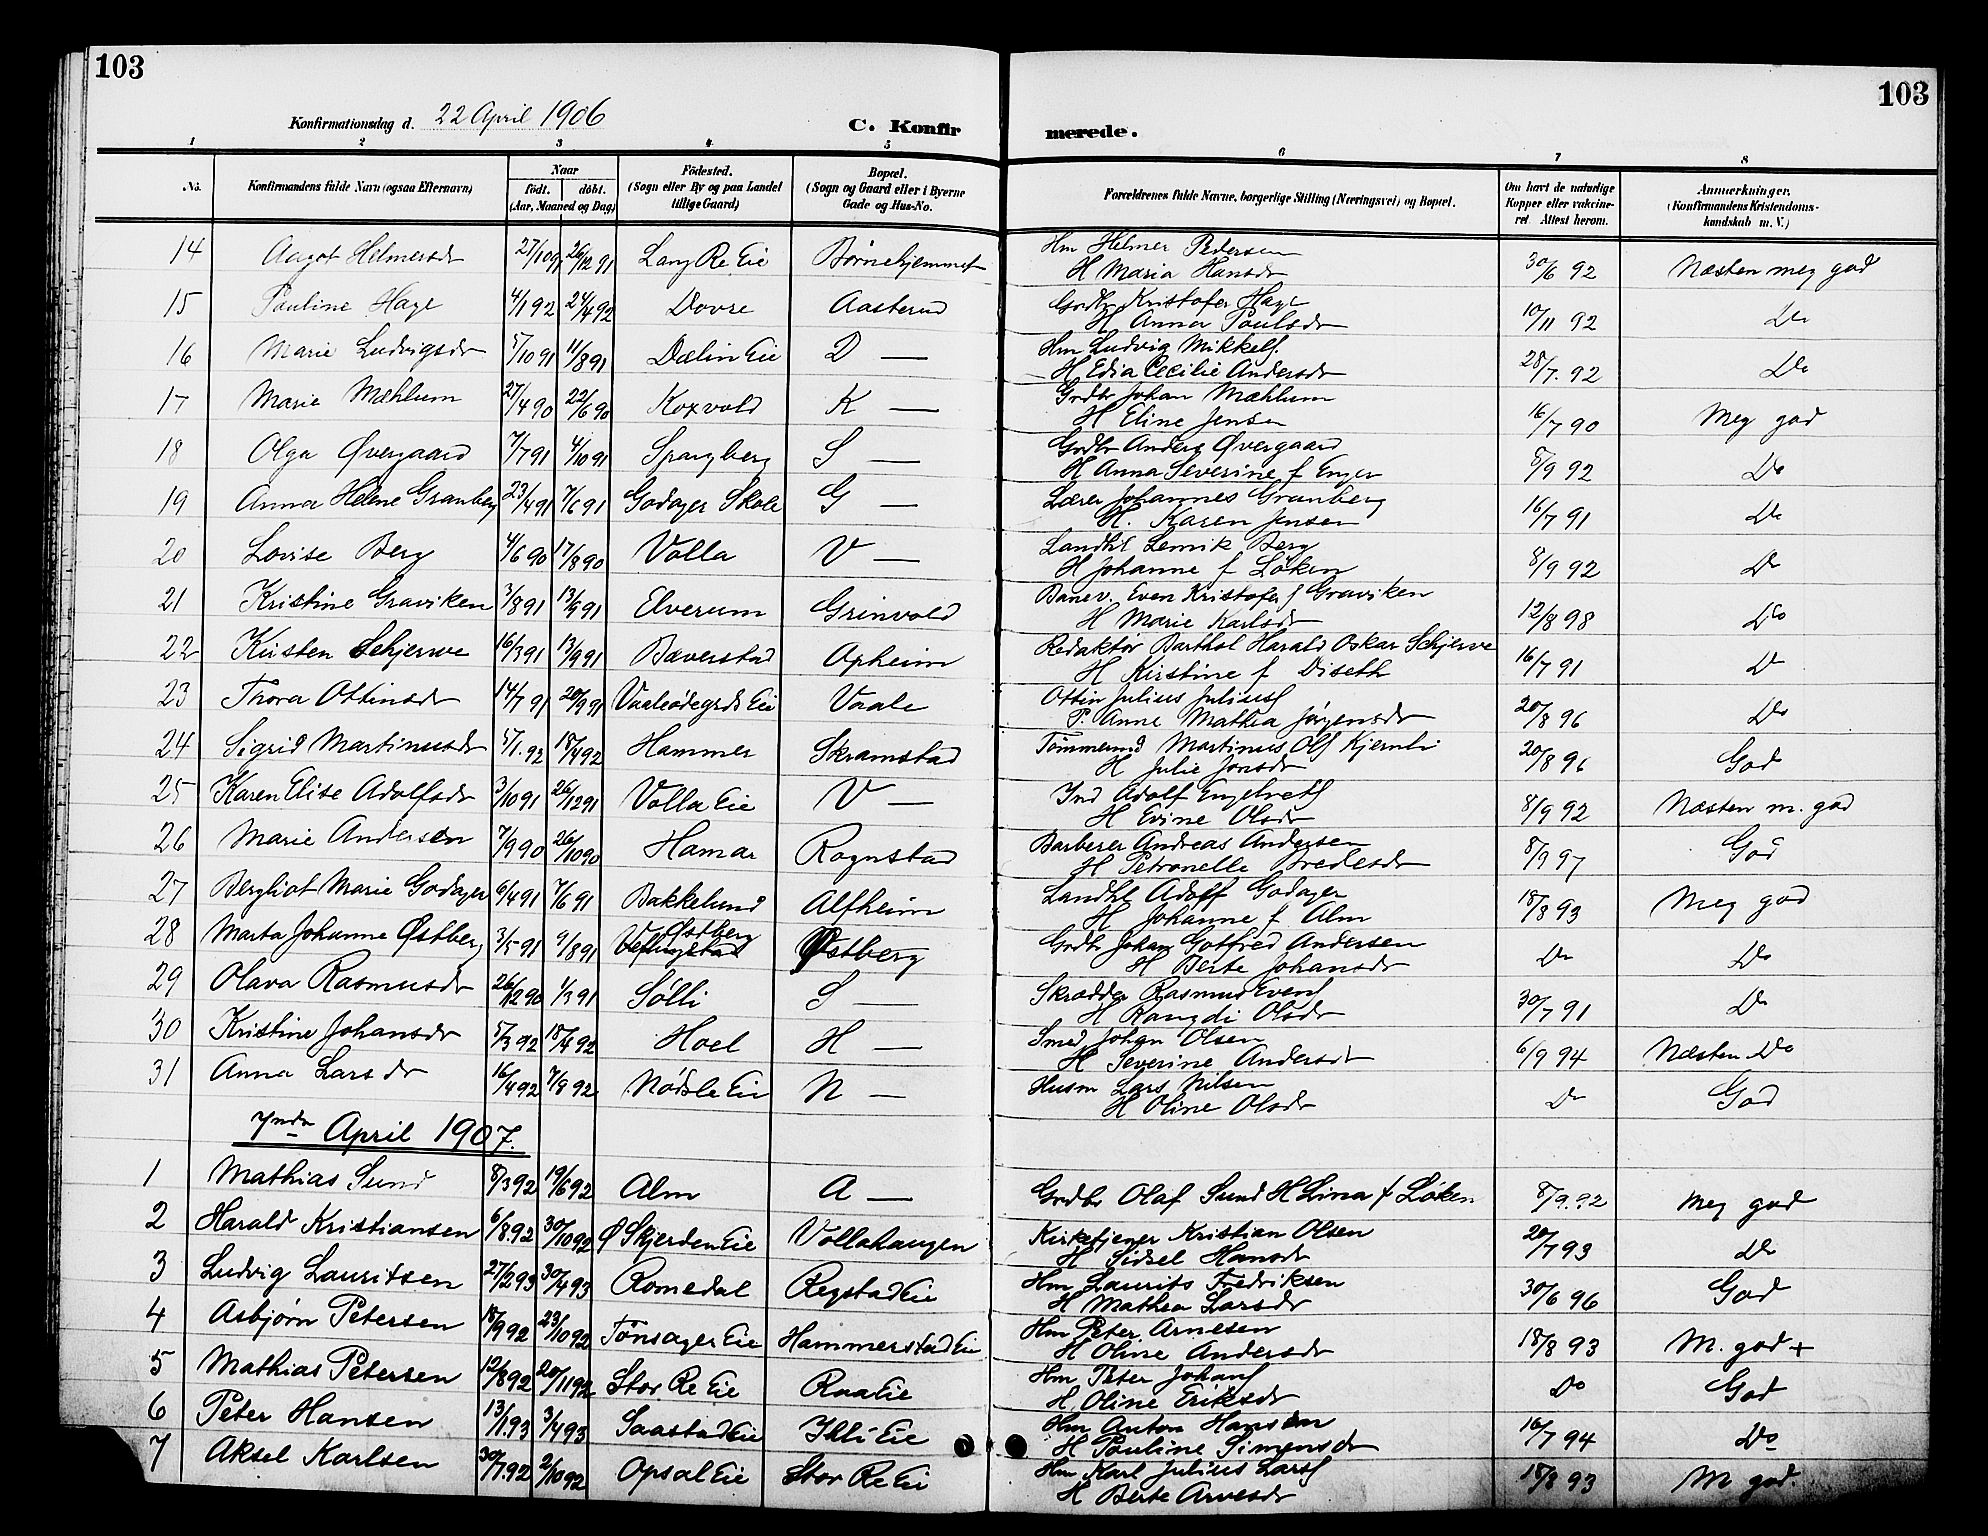 103
103
Konfirmationsdag d. 22 April 1906
C. Konfirmerede.
1 2 3 4 5 6 7 8
No. | Konfirmandens fulde Navn (ogsaa Efternavn) | Naar født. døbt. (Aar, Maaned og Dag) | Fødested. (Sogn eller By og paa Landet tillige Gaard) | Bopæl. (Sogn og Gaard eller i Byerne Gade og Hus-No. | Forældrenes fulde Navne, borgerlige Stilling (Næringsvei) og Bopæl. | Om havt de naturlige Kopper eller vakcineret Attest herom. | Anmærkninger. (Konfirmandens Kristendomskundskab m. V.)
14 Aagot Helmersdr 27/10 91 26/12 91 Lang Re Eie Børnehjemmet Hm Helmer Pedersen H Maria Hansdr 30/6 92 Næsten meg god
15 Pauline Hage 4/1 92 24/4 92 Dovre Aasterud Grdbr Kristofer Hage H Anna Paulsdr 10/11 92 Do
16 Marie Ludvigsdr 5/10 91 11/8 91 Dælin Eie D — Hm Ludvig Mikkels. H Edia Cecilie Andersdr 28/7. 92 Do
17 Marie Mæhlum 27/4 90 22/6 90 Koxvold K — Grdbr Johan Mæhlum H Eline Jensen 16/7 90 Meg god
18 Olga Øvergaard 7/7 91 4/10 91 Spangberg S — Grdbr Anders Øvergaard H Anna Severine f Enger 8/9 92 Do
19 Anna Helene Granberg 23/4 91 7/6 91 Godager Skole G — Lærer Johannes Granberg H. Karen Jensen 16/7 91 Do
20 Lovise Berg 4/6 90 17/8 90 Volla V — Landhl Lenrik Berg H Johanne f Løken 8/9 92 Do
21 Kristine Graviken 3/8 91 13/9 91 Elverum Grinvold Banev. Even Kristofer f Graviken H Marie Karlsdr 12/8 98 Do
22 Kirsten Schjerve 16/3 91 13/9 91 Bæverstad Apheim Redaktør Barthol Harald Oskar Schjerve H Kirstine f Diseth 16/7 91 Do
23 Thora Ottinsdr 14/7 91 20/9 91 Vaaleødegrds Eie Vaale Ottin Julius Juliusf P. Anne Mathea Jørgensdr 20/8 96 Do
24 Sigrid Martinusdr 5/1. 92 18/4 92 Hammer Skramstad Tømmermd Martinus Olf Kjernli H Julie Jonsdr 20/8 96 God
25 Karen Elise Adolfsdr 3/10 91 26/12 91 Volla Eie V — Ind Adolf Engebretf H Evine Olsdr 8/9 92 Næsten m. god
26 Marie Andersen 7/9 90 26/10 90 Hamar Rognstad Barberer Andreas Andersen H Petronelle Fredesdr 8/3 97 God
27 Bergliot Marie Godager 6/4 91 7/6 91 Bakkelund Alfheim Landhl Adolf Godager H Johanne f. Alm 18/8 93 Meg god
28 Marta Johanne Østberg 3/5 91 9/8 91 Østberg Østberg Grdbr Johan Gotfred Andersen H Berte Johansdr Do Do
29 Olava Rasmusdr 26/12 90 1/3 91 Sølli S — Skrædder Rasmus Evenf H Rangdi Olsdr 30/7 91 Do
30 Kristine Johansdr 5/3 92 18/4 92 Hoel H — Smed Johan Olsen H Severine Andersdr 6/9 94 Næsten Do
31 Anna Larsdr 16/4 92 7/8 92 Nødsle Eie N — Husm Lars Nilsen H Oline Olsdr Do God
7nde April 1907.
1 Mathias Sund 8/3 92 19/6 92 Alm A — Grdbr Olaf Sund H Lina f Løken 8/9. 92 Meg god
2 Harald Kristiansen 6/8. 92 30/10 92 Ø Skjerden Eie Vollahaugen Kirketjener Kristian Olsen H Sidsel Hansdr 20/7 93 Do
3 Ludvig Lauritsen 27/2 93 30/4 93 Romedal Regstad Eie Hm Laurits Fredriksen H Mathea Larsdr 30/6 96 God
4 Asbjørn Petersen 18/9 92 23/10 92 Tønsager Eie Hammerstad Eie Hm Peter Arnesen H Oline Andersdr 18/8 93 M. god +
5 Mathias Petersen 12/8 92 20/11 92 Stor Re Eie Raa Eie Hm Peter Johanf H. Oline Eriksdr Do God
6 Peter Hansen 13/1. 93 3/4 93 Saastad Eie Illi Eie Hm Anton Hansen H Pauline Simensdr 16/7 94 Do
7 Aksel Karlsen 30/7. 92 2/10 92 Opsal Eie Stor Re Eie Hm Karl Julius Larsf H Berte Arnesdr 18/8 93 M god.